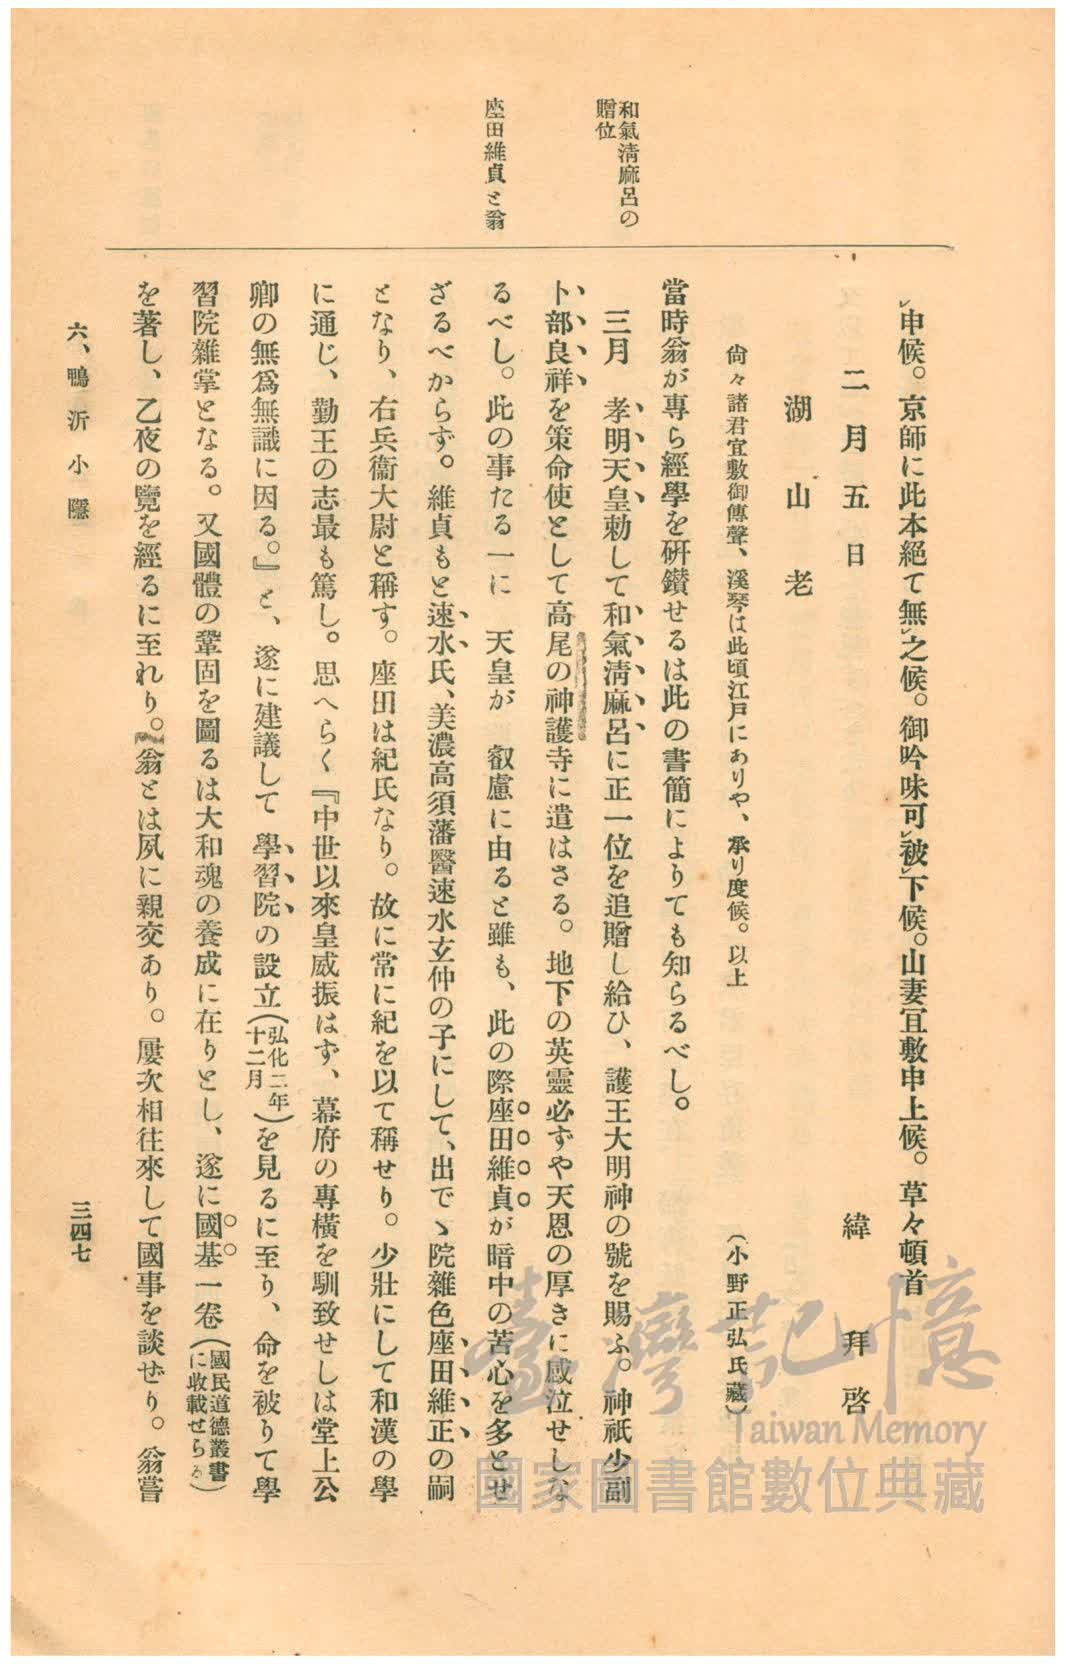 和氣淸麻呂の
贈位
座田維貞と翁
申候。京師に此本絕て無レ之候。御吟味可レ被レ下候。山妻宜敷申上候。草々頓首
二月五日 緯 拜啓
湖山老
尙々諸君宜敷御傳聲、溪琴は此頃江戶にありや、承り度候。以上
(小野正弘氏藏)
當時翁が專ら經學を硏鑚せるは此の書簡によりても知らるべし。
三月 孝明天皇勅して和氣淸麻呂に正一位を追贈し給ひ、護王大明神の號を賜ふ。神祇少副
卜部良祥を策命使として高尾の神護寺に遣はさる。地下の英靈必ずや天恩の厚きに感泣せしな
るべし。此の事たる一に 天皇が 叡慮に由ると雖も、此の際座田維貞が暗中の苦心を多とせ
ざるべからず。維貞もと速水氏、美濃高須藩醫速水玄仲の子にして、出でゝ院雜色座田維正の嗣
となり、右兵衞大尉と稱す。座田は紀氏なり。故に常に紀を以て稱せり。少壯にして和漢の學
に通じ、勤王の志最も篤し。思へらく『中世以來皇威振はず、幕府の專橫を馴致せしは堂上公
卿の無爲無識に因る。』と、遂に建議して 學習院の設立(弘化二年十二月)を見るに至り、命を被りて學
習院雜掌となる。又國體の鞏固を圖るは大和魂の養成に在りとし、遂に國基一卷(國民道德叢書に收載せらる)
を著し、乙夜の覽を經るに至れり。翁とは夙に親交あり。屢次相往來して國事を談ぜり。翁嘗
六、鴨沂小隱
三四七
臺灣記憶
Taiwan Memory
國家圖書館數位典藏